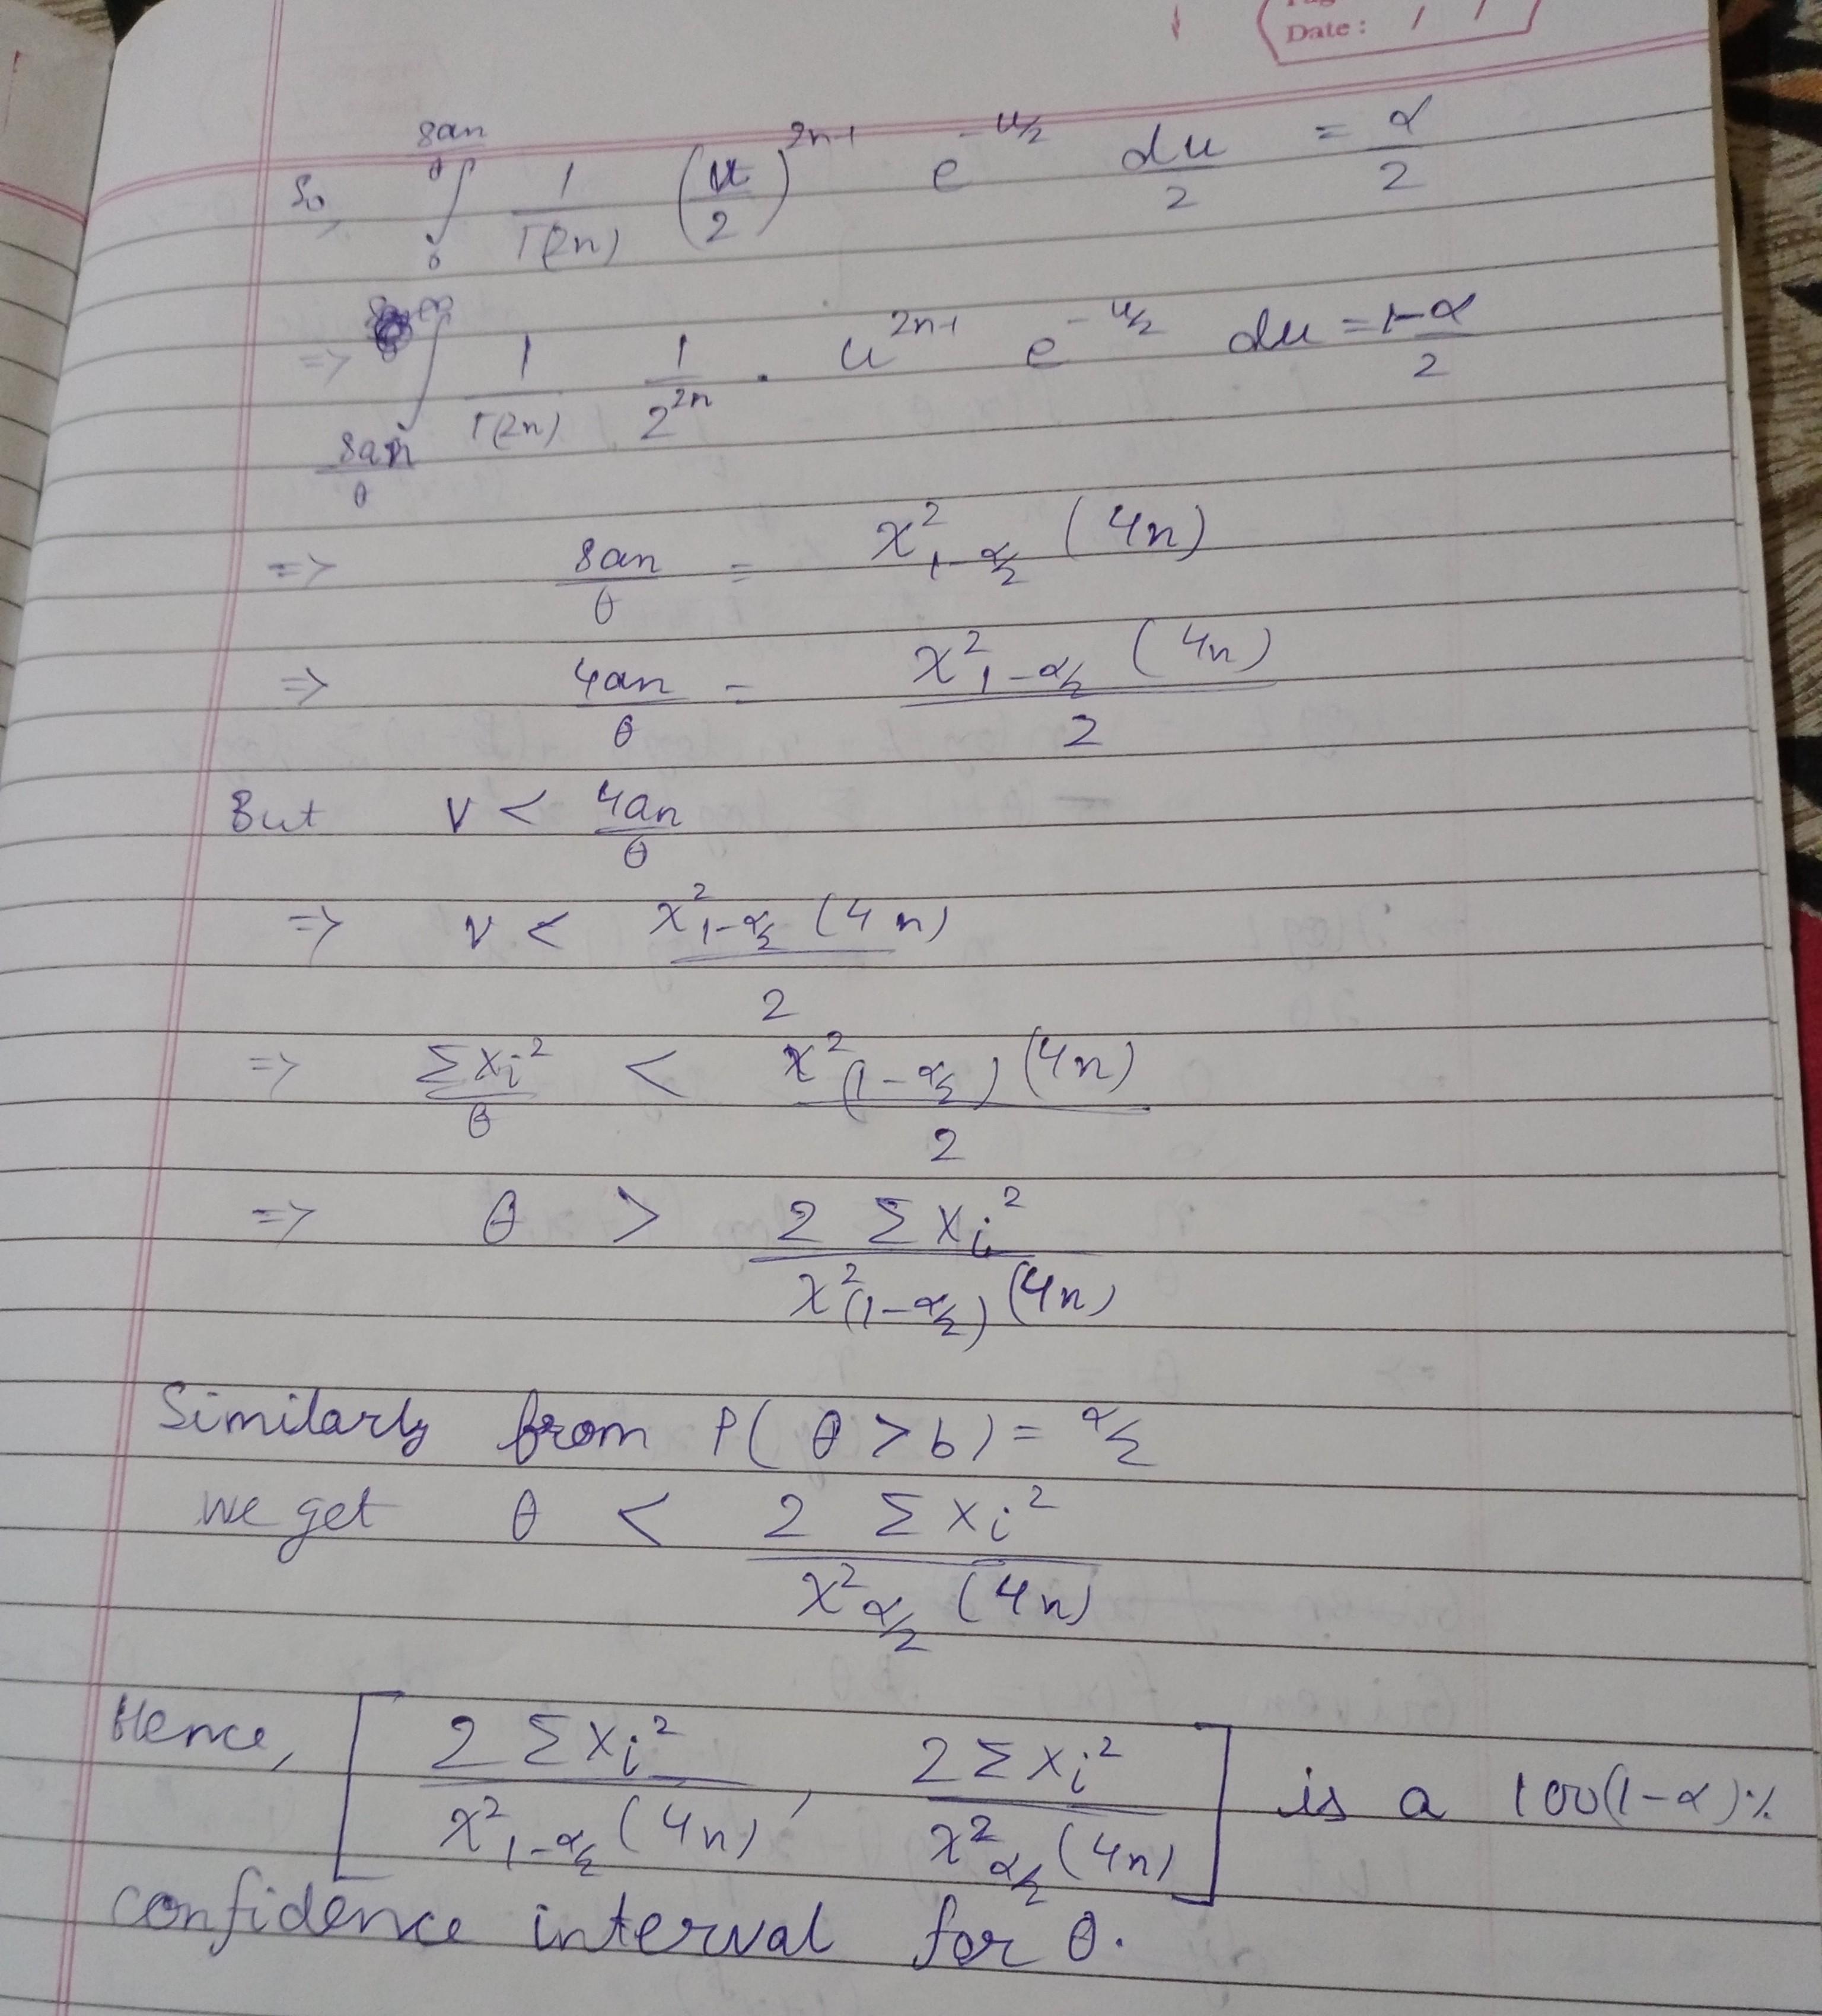 Date : / /
So, ∫_0^{8an/θ} 1/Γ(2n) (u/2)^{2n-1} e^{-u/2} du/2 = α/2
=> ∫_{8an/θ}^{∞} 1/Γ(2n) 1/2^{2n} . u^{2n-1} e^{-u/2} du = 1-α/2
=> 8an/θ = χ²_{1-α/2} (4n)
=> 4an/θ = χ²_{1-α/2} (4n)/2
But V < 4an/θ
=> V < χ²_{1-α/2} (4n)/2
=> Σxi²/θ < χ²_{(1-α/2)} (4n)/2
=> θ > 2 Σxi²/χ²_{(1-α/2)} (4n)
Similarly from P(θ > b) = α/2
we get θ < 2 Σxi²/χ²_{α/2} (4n)
Hence, [2 Σxi²/χ²_{1-α/2} (4n), 2Σxi²/χ²_{α/2} (4n)] is a 100(1-α)%
confidence interval for θ.